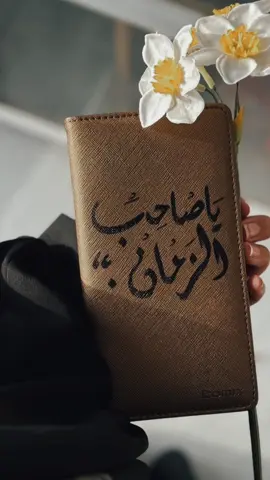 يا صاحب
الزمان